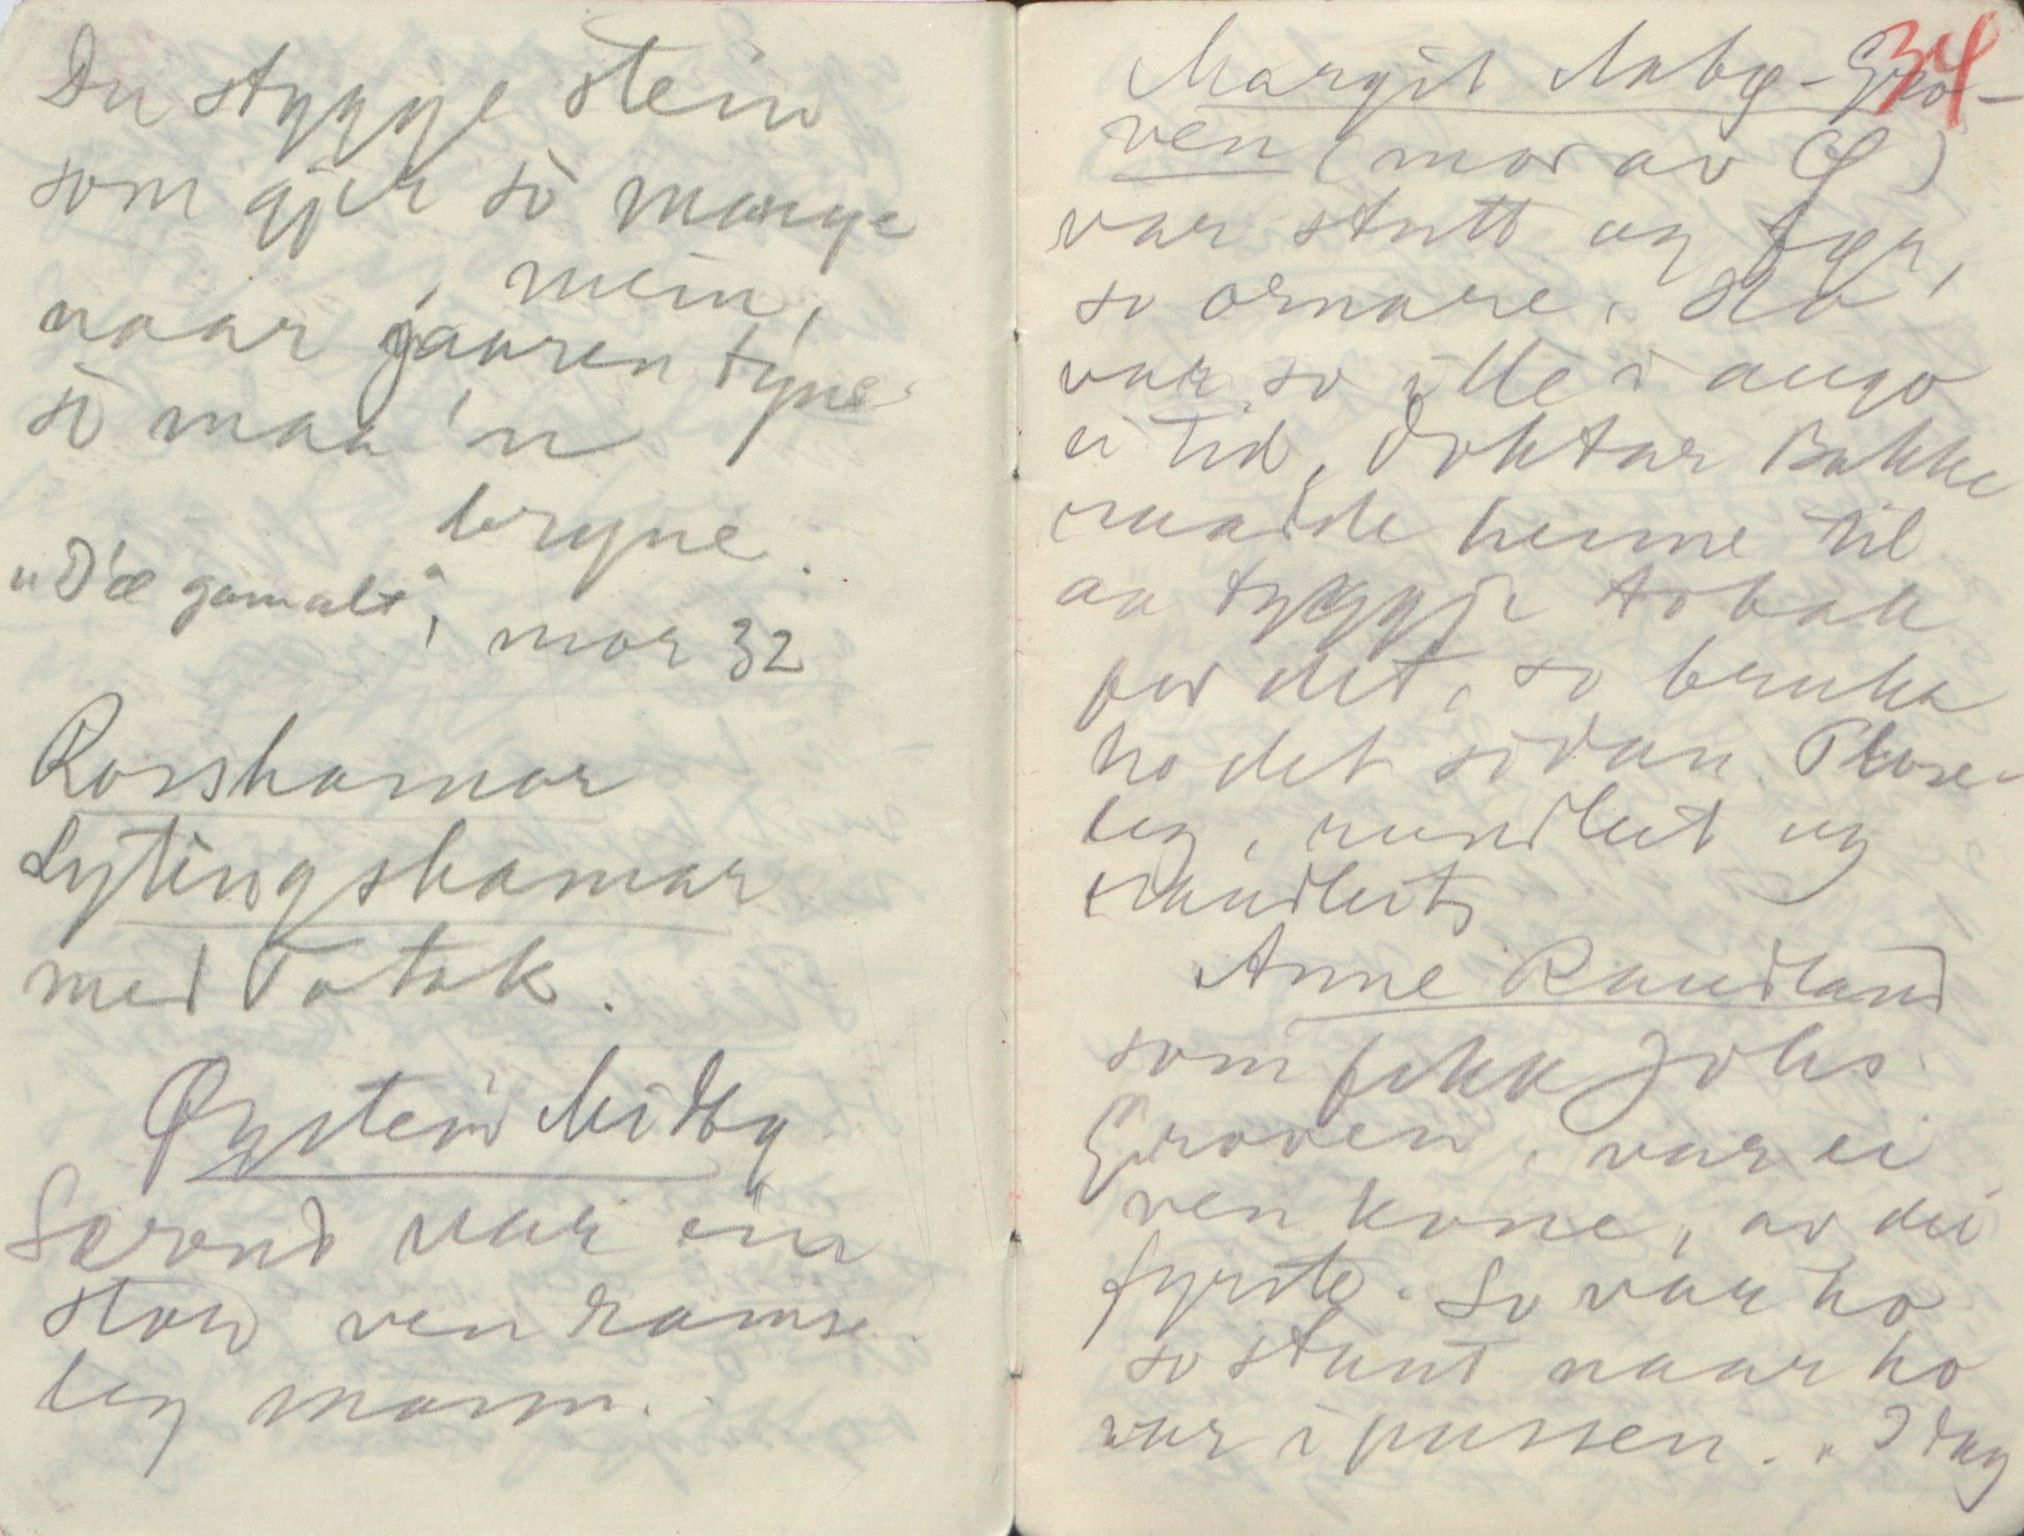 Du stygge stein
som gjer sò mange
mein,
naar jaaren tyne
sò maa 'n
bryne.
"D'æ gamalt", mor 32
Rosshamar
Lytingshamar
med Totak.
Øystein Midby
Særond var ein
stor ven ramse-
leg mann.
34
Margit Aaby-Gro-
ven (mor av O)
var stutt og før,
so ornare. Ho
var so ille i augo
ei tid, doktar Bakke
raadde henne til
aa tyggje tobak
for det, so bruka
ho det sidan. Plose-
leg, rundleit og
raudleit,
Anne Raudland
som fekk Johs.
Groven, var ei
ven kone, av dei
fyrste. So var ho
so stunt naar ho
var i pussen. "I dag